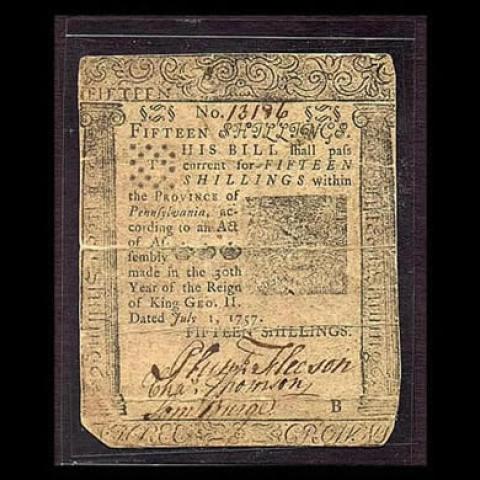 FIFTEEN
No. 13186
FIFTEEN SHILLINGS.
THIS BILL shall pass
current for FIFTEEN
SHILLINGS within
the PROVINCE of
Pennsylvania, ac-
cording to an Act
of As-
sembly
made in the 30th
Year of the Reign
of King GEO. II.
Dated July 1, 1757.
FIFTEEN SHILLINGS.
Plunkt Fleeson
Cha. Thomson
Sam Burge
B
THREE CROWNS
Shillings
Shillings